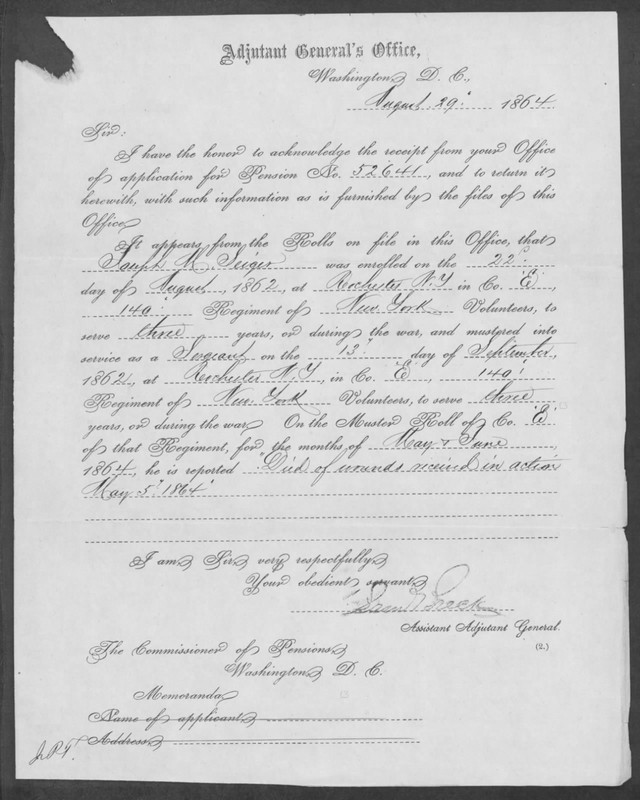 Adjutant General's Office,
Washington, D. C.,
August 29" 1864
Sir:
I have the honor to acknowledge the receipt from your Office
of application for Pension No. 52641, and to return it
herewith, with such information as is furnished by the files of this
Office.
It appears from the Rolls on file in this Office, that
Joseph M. Seiger was enrolled on the 22"
day of August, 1862, at Rochester N.Y. in Co. "E",
140" Regiment of New York Volunteers, to
serve three years, or during the war, and mustered into
service as a Sergeant on the 13" day of September,
1862, at Rochester N.Y., in Co. "E", 140"
Regiment of New York Volunteers, to serve three
years, or during the war. On the Muster Roll of Co. "E"
of that Regiment, for the months of May & June,
1864, he is reported "Died of wounds received in action
May 5" 1864"
I am, Sir, very respectfully,
Your obedient servant,
Assistant Adjutant General.
(2.)
The Commissioner of Pensions,
Washington, D. C.
Memoranda
Name of applicant,
Address,